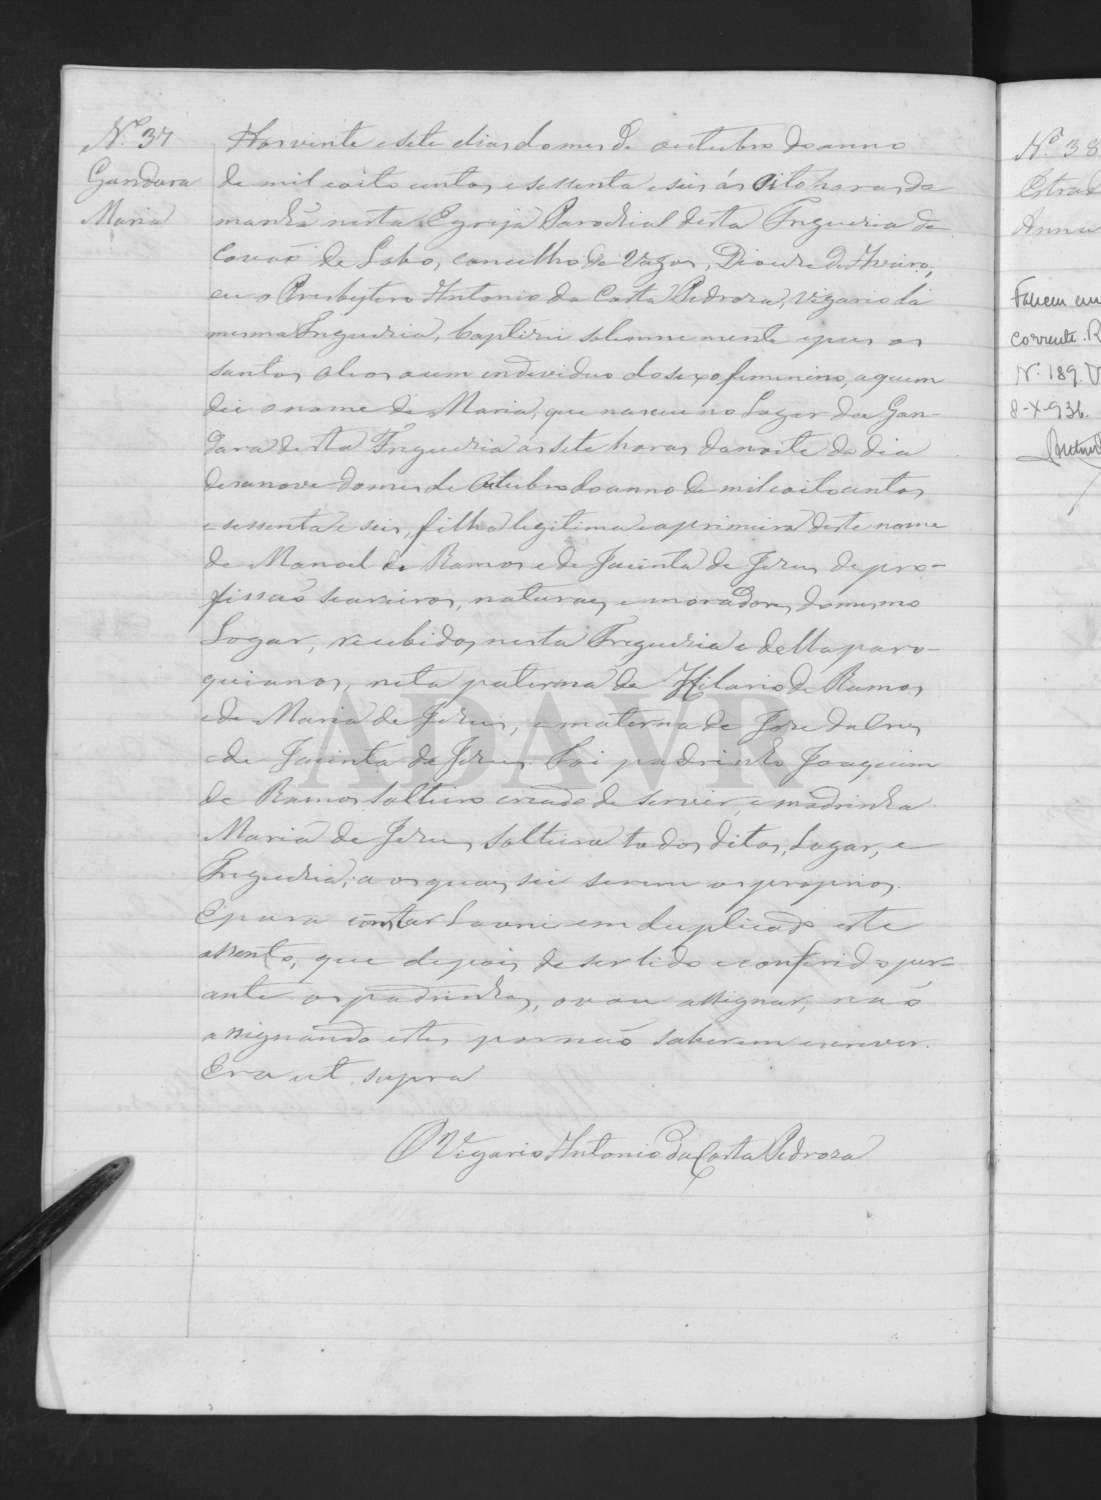 N.º 37
Gandara
Maria
Aos vinte e sete dias do mes de outubro do anno
de mil oito centos e sessenta e seis ás oito horas da
manhã nesta Egreja Parochial desta Freguezia de
Covaõ de Lobo, concelho de Vagos, Diocese de Aveiro,
eu o Presbytero Antonio da Costa Pedroza, Vigario da
mesma Freguezia, baptizei solemnemente e pus os
santos oleos a um individuo do sexo femenino, a quem
dei o nome de Maria, que nasceu no Lugar da Gan-
dara desta Freguezia ás sete horas da noite do dia
desanove do mes de Outubro do anno de mil oito centos
e sessenta e seis, filha legitima e a primeira deste nome
de Manoel de Ramos e de Jacinta de Jezus de pro-
fissaõ seareiros, naturaes e moradores do mesmo
Logar, recebidos nesta Freguezia e della paro-
quianos, neta paterna de Hilario de Ramos
e de Maria de Jezus, e materna de Jose da Cruz
e de Jacinta de Jezus. Foi padrinho Joaquim
de Ramos solteiro creado de servir, e madrinha
Maria de Jezus, solteira todos ditos, Lugar, e
Freguezia, a os quaes sei serem os proprios.
E para constar lavrei em duplicado este
assento, que depois de ser lido e conferido per-
ante os padrinhos, o vou assignar, naõ
assignando estes por naõ saberem escrever.
Era ut supra
O Vigario Antonio da Costa Pedroza
ADAVR
N.º 38
Estrad
Anna
corrente. R
N.º 189. V
8-X-936.